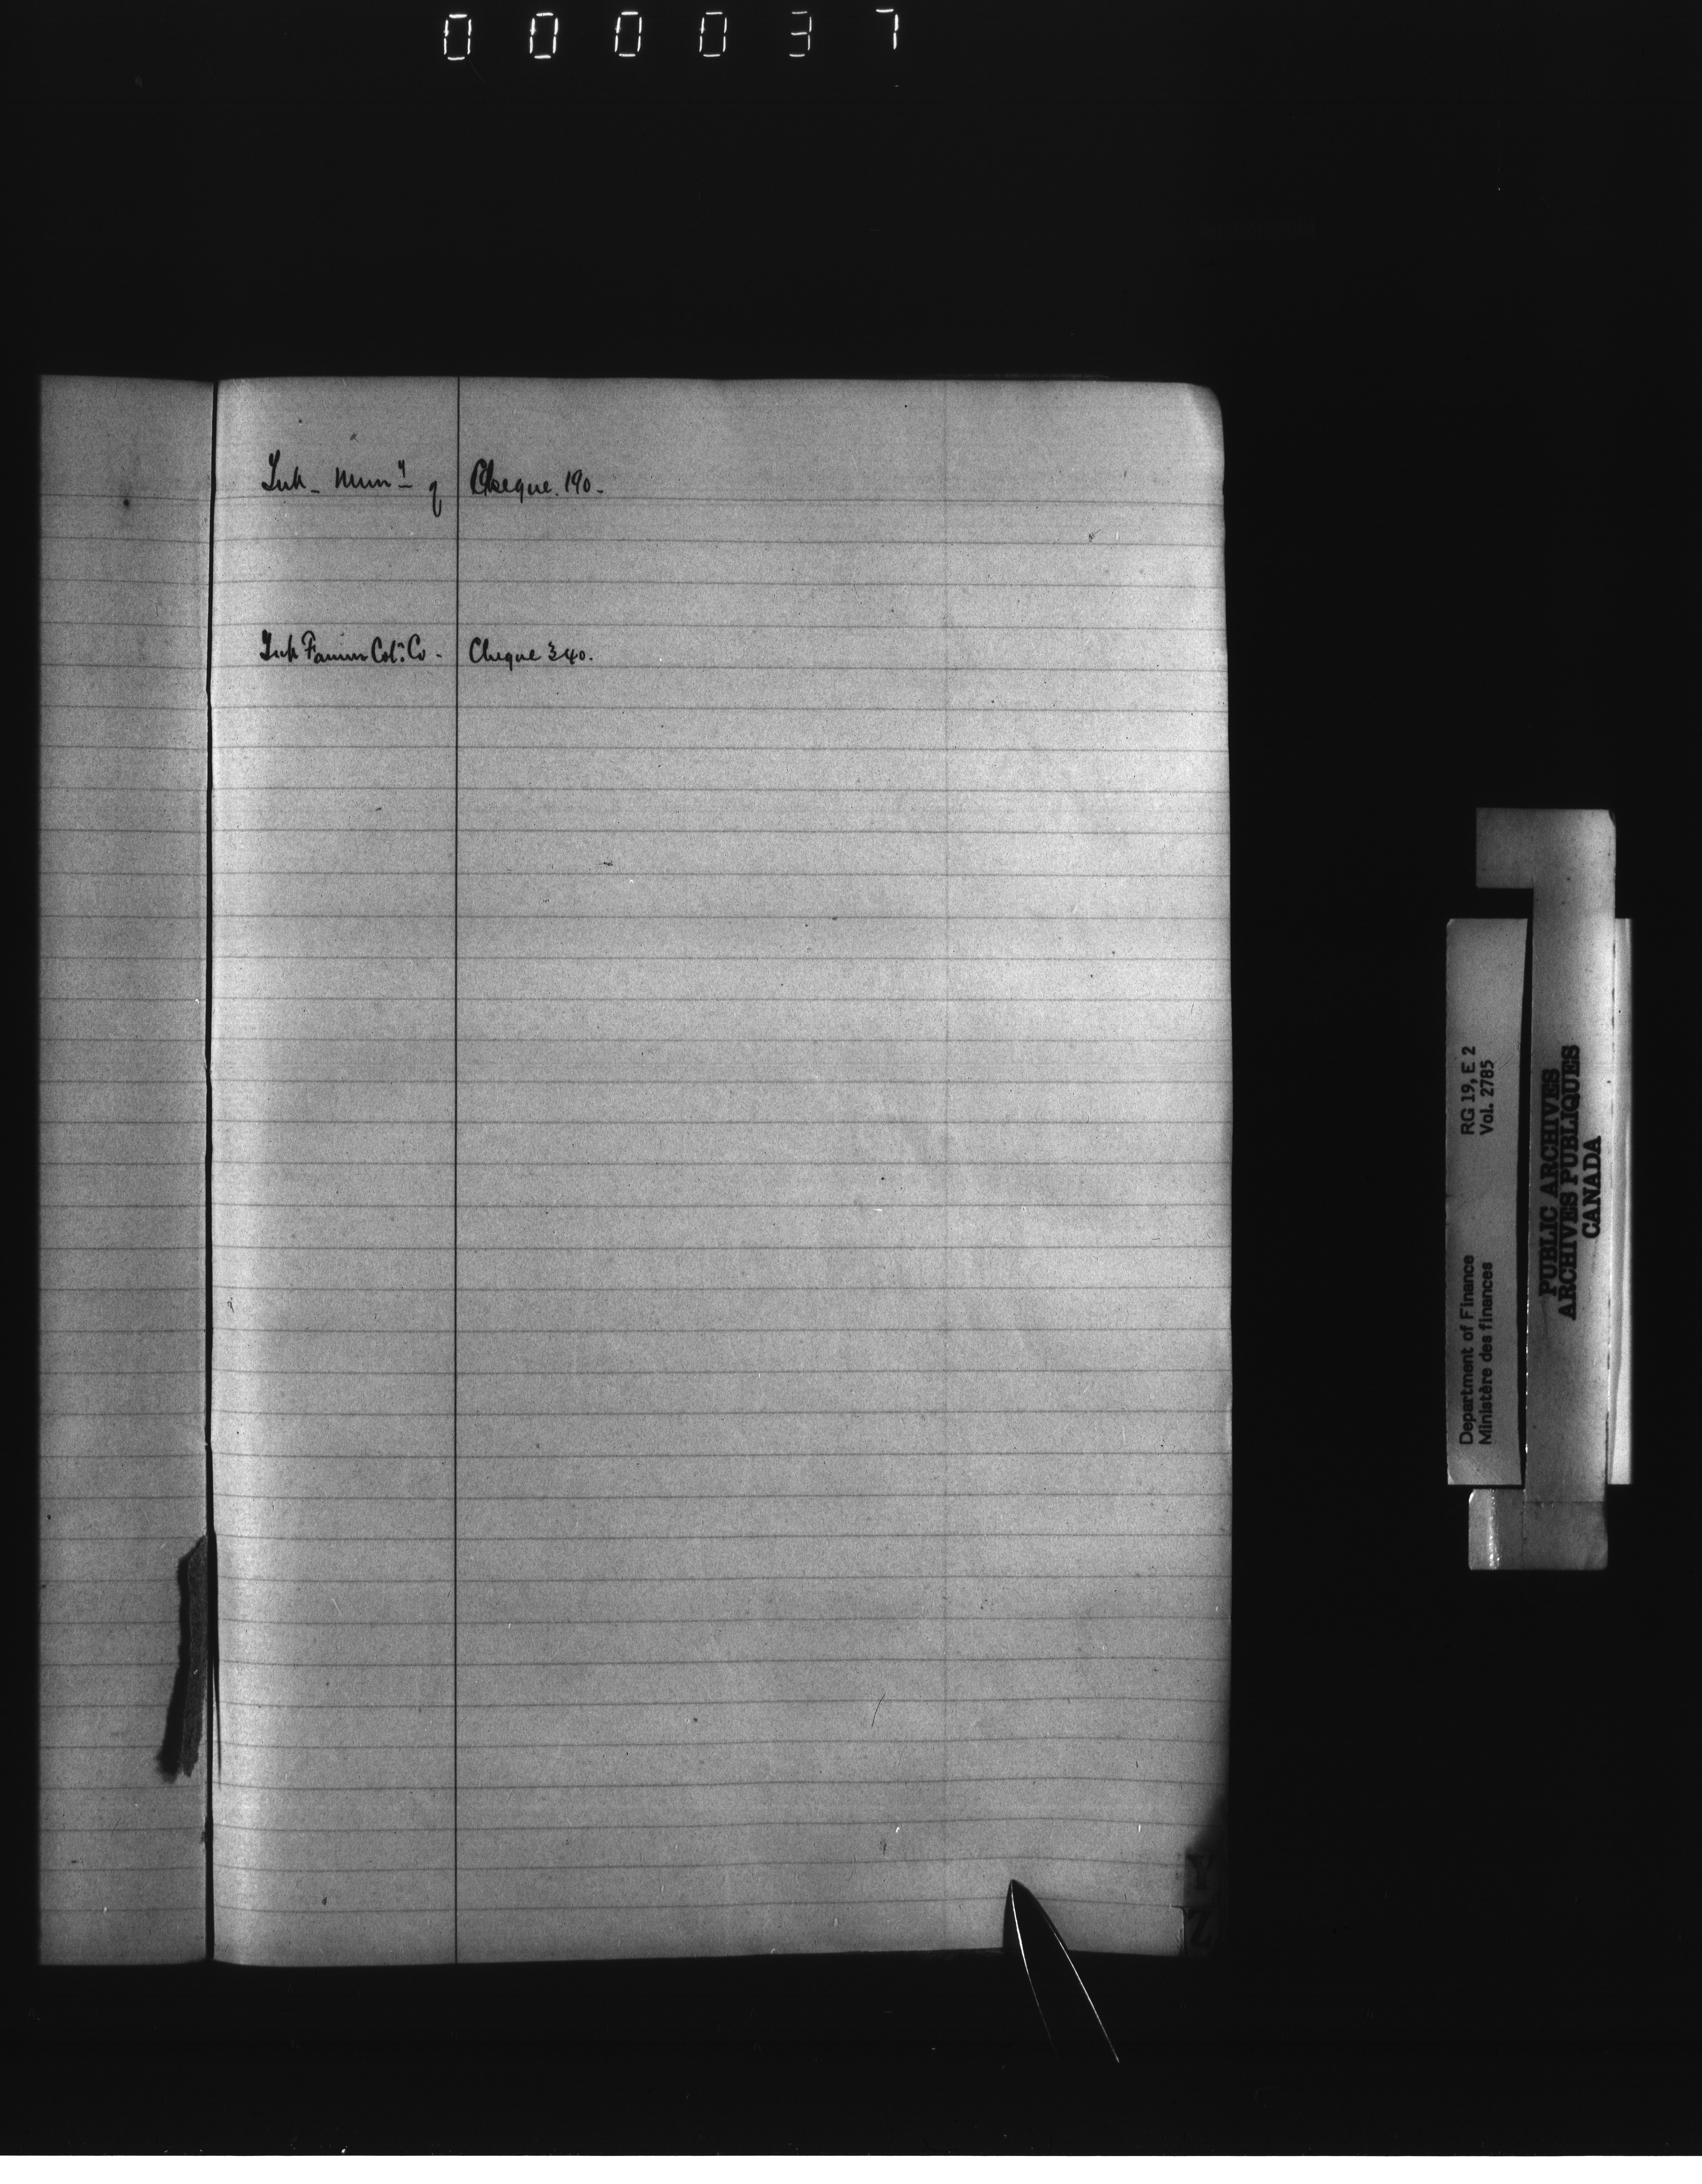 000037
York - Mun'y of Cheque. 190.
York Farmers Col'n Co. - Cheque 340.
Y
Z
Department of Finance RG 19, E 2
Ministère des finances Vol. 2785
PUBLIC ARCHIVES
ARCHIVES PUBLIQUES
CANADA